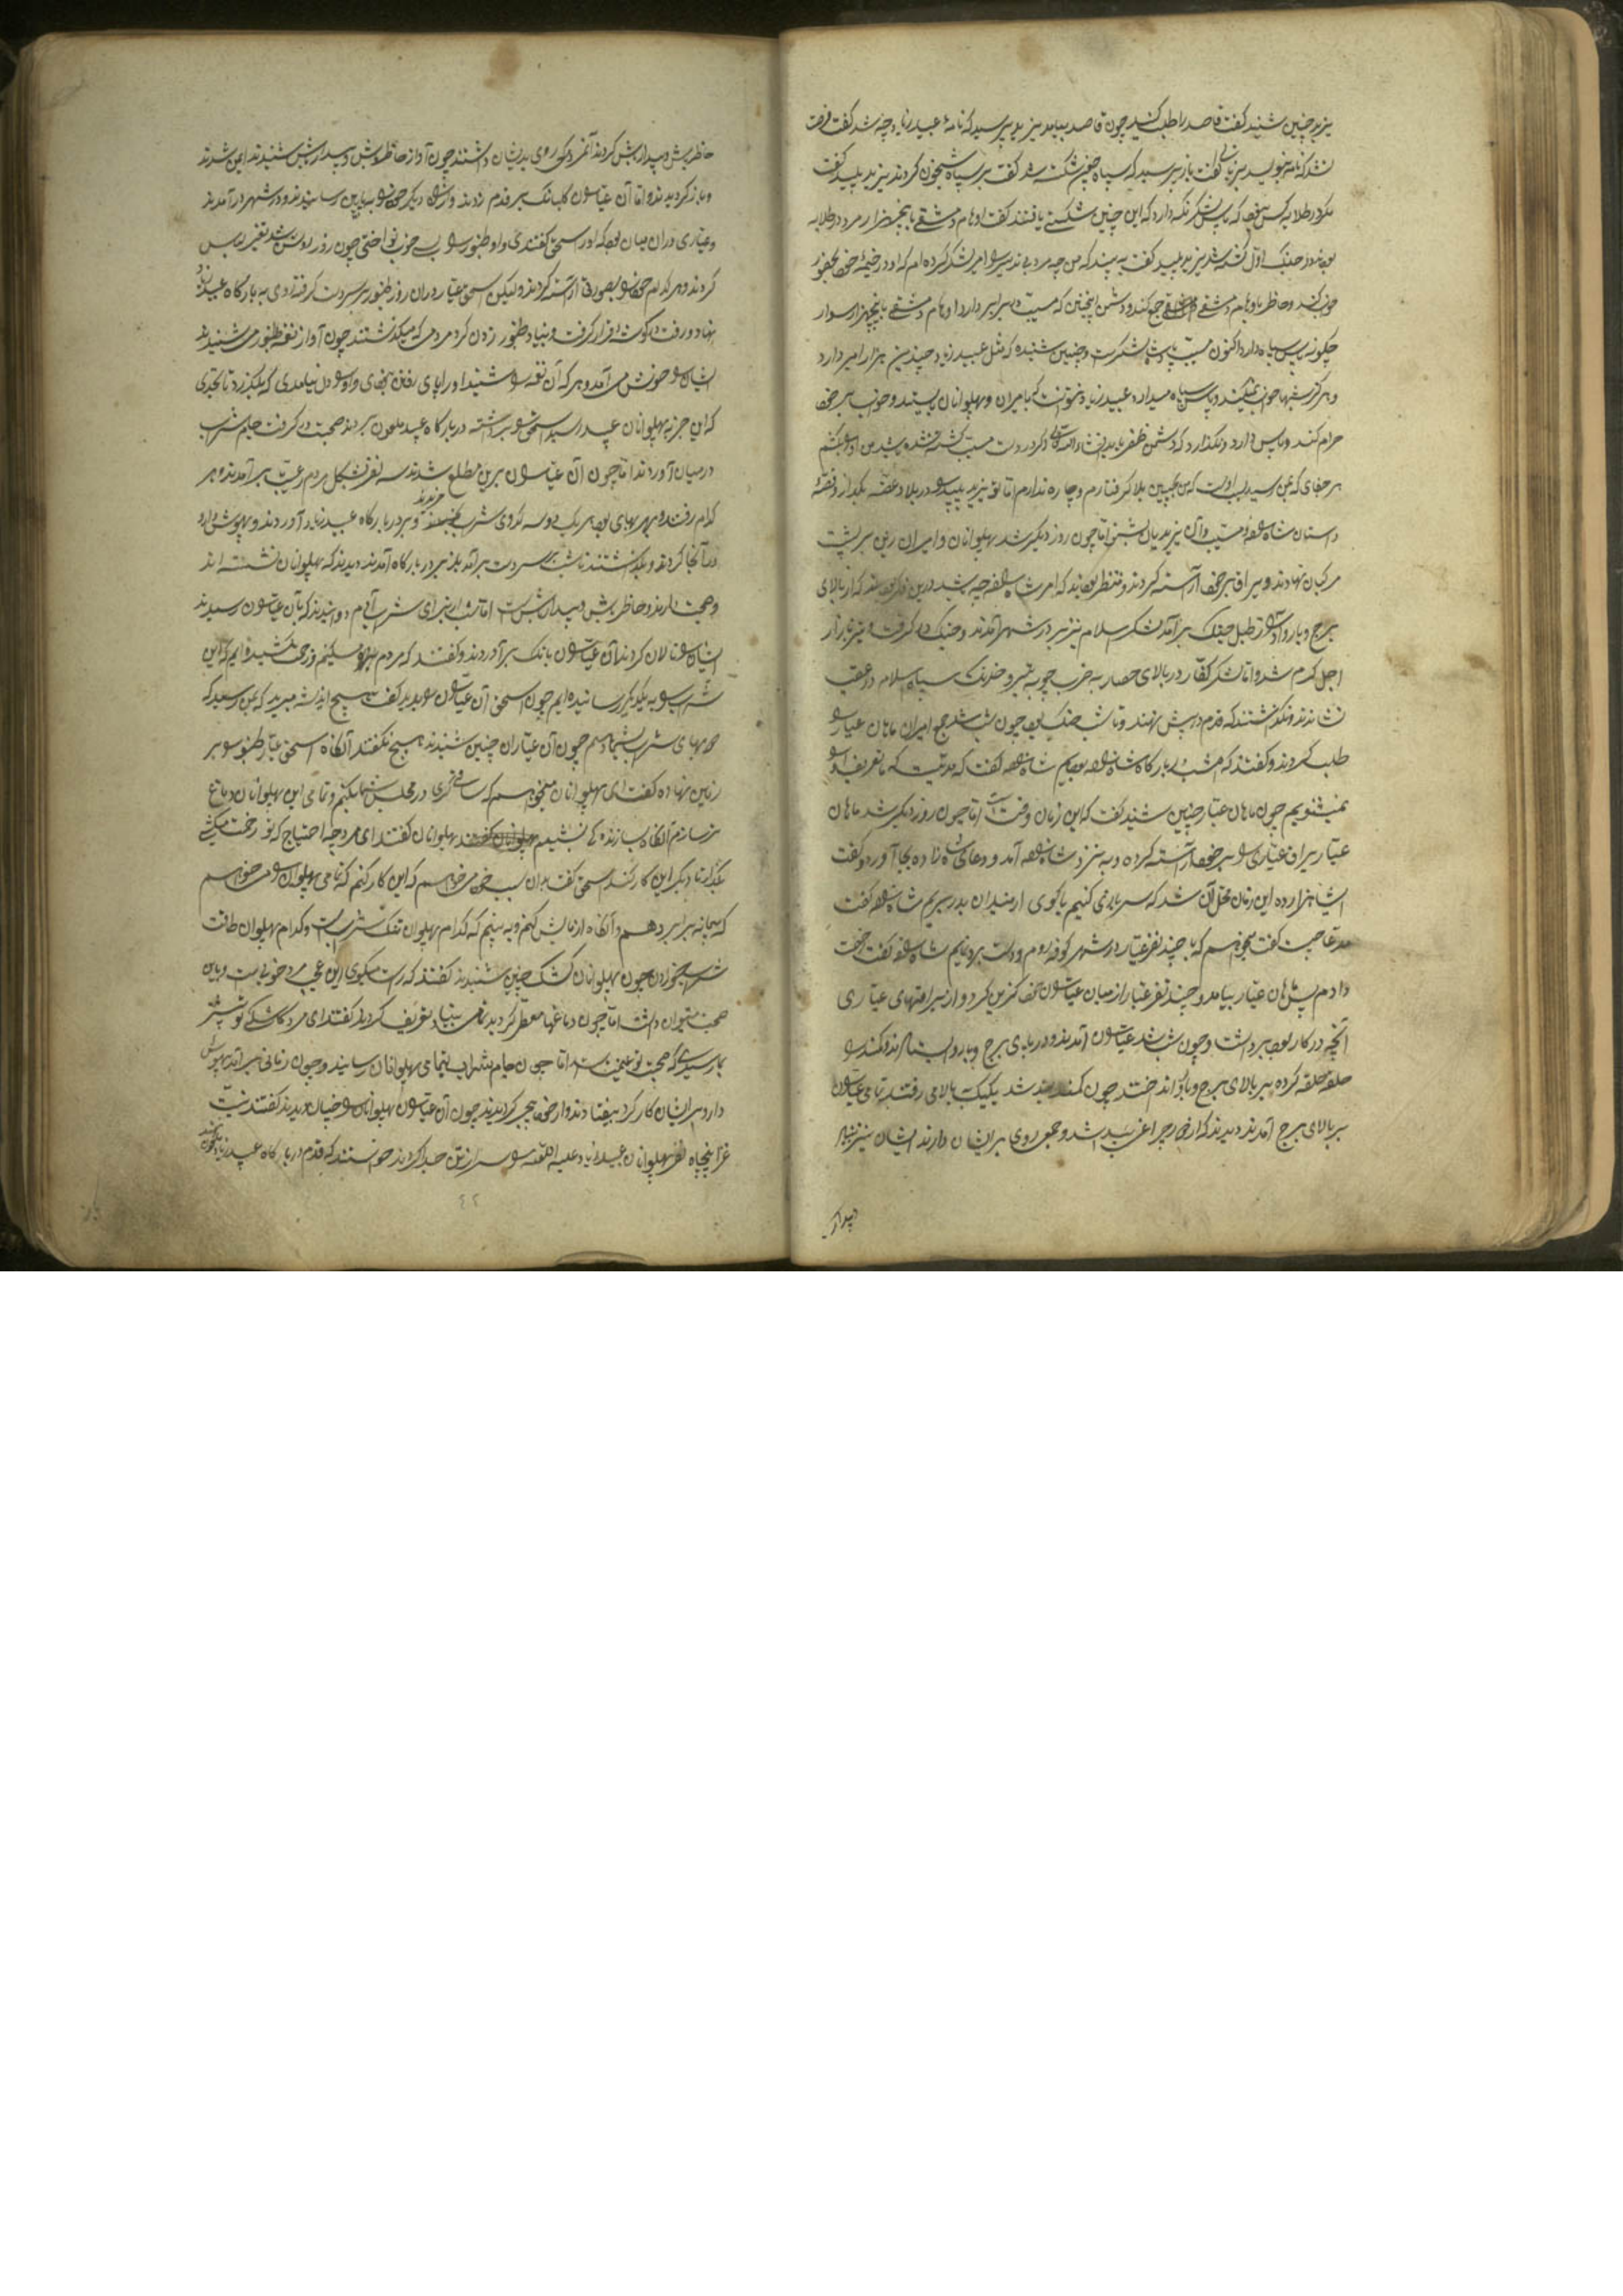 یزید چنین شنید گفت قاصد را طلب کنید چون قاصد بیامد یزید پرسید که نامهٔ عبید زیاد چه شد گفت فرصت
نشد که نامه نویسد یزید گفت باز پرسید که سپاه چنین شکسته شد گفت بر سپاه شبیخون کردند یزید پلید گفت
مکر در طلایه کس نبود که پاس لشکر نگه دارد که این چنین شکستی یافتند گفت اوهام دمشقی با پنجهزار مرد در طلایه
بود جنگ اول کشته شد یزید پلید گفت به بینید که من چه مرد بی تدبیر را امیر لشکر کرده ام که او در خیمهٔ خود بحضور
خواب کند و خاطر باوهام دمشقی جمع کند و دشمن اینچنین که مسیب در برابر دارد اوهام دمشقی با پنجهزار سوار
چگونه پاس سپاه دارد اکنون مسیب پادشاه لشکرست و چنین شنیده که مثل عبید زیاد چندین هزار امیر دارد
و هر گز شبها خواب نمیکند و پاس سپاه میدارد عبید زیاد نتوانست که با امیران و پهلوانان بایستد و خواب بر خود
حرام کند و پاس دارد و نگذارد که دشمن ظفر یابد
هر جفای که بمن رسید که من بچنین بلا گرفتارم و چاره ندارم اما تو یزید پلید را در بلا و غصه بگذار و قصهٔ
داستان شاه مسیب و آل یزیدیان بشنو اما چون روز دیگر شد پهلوانان و امیران زین بر پشت
مرکبان نهادند و یراق بر خود آراسته کردند و منتظر بودند که امر شاه چه باشد درین فکر بودند که از بالای
برج و بارو آواز طبل جنگ بر آمد لشکر اسلام نیز بر در شهر آمدند و جنگ در گرفت و تیز بازار
اجل گرم شد و اما لشکر کفار در بالای حصار به ضرب چوبه تیر و خدنگ سپاه اسلام در عقب
نشاندند و نگذاشتند که قدم در پیش نهند و تا شب جنگ بود چون شب شد جمع امیران ماهان عیار را
طلب کردند و گفتند که امشب در بارگاه شاه بودیم شاه گفت که مدتیست که ما تعریف او
میشنویم چون ماهان عیار چنین شنید گفت که این زمان وقتست اما چون روز دیگر شد ماهان
عیار یراق عیاری را بر خود آراسته کرده و به نزد شاه آمد و دعای شاه زاده بجا آورد و گفت
ای شاهزاده این زمان محل آن شد که سر بازی کنیم یا گوی از میدان بدر بریم شاه گفت
مدعا چیست گفت میخواهم که با چند نفر عیار در شهر کوفه روم و دست بردی نمایم شاه گفت رخصت
دادم پس ماهان عیار بیامد و چند نفر عیار از میان عیاران خود گزین کرد و از یراقهای عیاری
آنچه در کار بود برداشت و چون شب شد عیاران آمدند و در پای برج و بارو ایستادند و کمند را
حلقه حلقه کرده بر بالای برج و بارو انداختند چون کمند بند شد یکیک بالا می رفتند تا تمامی عیاران
بر بالای برج آمدند دیدند که از خارجی چراغی پیدا شد و جمعی روی بر ایشان دارند ایشان نیز بنیاد
دیدار
خاطر باش و بیدار باش کردند آنمردم که روی بدیشان داشتند چون آواز حاظر باش و بیدار باش شنیدند ایمن شدند
و باز گردیدند و اما آن عیاران گلبانگ بر قدم زدند و از سوی دیگر خود را بپایین رسانیدند و در شهر در آمدند
و عیاری در آن میان بود که او را اسحق گفتندی و او طنبور را بسی خوب نواختی چون روز روشن شد تغییر لباس
کردند و هر کدام خود را بصورتی آراسته کردند و لیکن اسحق عیار در آن روز طنبور بر سر دست گرفته روی به بارگاه عبید زیاد
نهاد و رفت در گوشه قرار گرفت و بنیاد طنبور زدن کرد مردمی که میگذشتند چون آواز نغمه طنبور می شنیدند
ایشان را خوش می آمد و هر که آن نغمه را شنید او را پای رفتن نبودی و او را دل نیامدی که بگذرد تا بحدی
که این خبر به پهلوانان عبید رسید اسحق را برداشته در بارگاه عبید ملعون بردند صحبت در گرفت جام شراب
در میان آوردند اما چون آن عیاران برین مطلع شدند سه نفر بشکل مردم رعیت بر آمدند و هر
کدام رفتند و هر بهای بود هر یک دو سه کدوی شراب خریدند و بر در بارگاه عبید زیاد آوردند و بیهوش دارو
در آنجا کردند و بگذاشتند تا شب بر سر دست بر آمد باز بر در بارگاه آمدند دیدند که پهلوانان نشسته اند
و صحبت دارند و حاظر باش و بیدار باش است اما شب از برای شراب آدم دوانیدند که بآن عیاران رسیدند
ایشان را نالان کردند آن عیاران بانگ بر آوردند و گفتند که مردم مسکینیم و زحمت کشیده ایم که این
شراب را به یکدیگر رسانیده ایم چون اسحق آن عیاران را بدید گفت هیچ اندیشه مبرید که بمن رسید که
من بهای شراب بشما دهم چون آن عیاران چنین شنیدند هیچ نگفتند آنگاه اسحق عیار طنبور را بر
زمین نهاده گفت ای پهلوانان میخواهم که ساقی گری در مجلس شما بکنم و تمامی این پهلوانان دماغ
تر سازم آنگاه بسازنده گی بنشینم پهلوانان گفتند ای مرد چه احتیاج که تو زحمت میکشی
بگذار تا دیگر این کار کند اسحق گفت بدان سبب خود میخواهم که این کار کنم که تمامی پهلوانان را میخواهم
که پیمانه برابر دهم و آنگاه آزمایش کنم و به بینم که کدام پهلوان تنک شرابست و کدام پهلوان طاقت
شراب خوردن دارد چون پهلوانان کشک چنین شنیدند گفتند که راست میگوی این عجب مرد خوبیست و باین
صحبت میتوان داشت اما چون دماغها معطر گردید تمامی بنیاد تعریف کردند گفتند ای مرد کاشکی تو پیشتر
بما رسیدی که صحبت تو غنیمتست اما چون جام شراب بتمامی پهلوانان رسانید و چون زمانی بر آمد بیهوش
دارو بر ایشان کار کرد بیفتادند و از خود بیخبر گردیدند چون آن عیاران پهلوانان را چنان دیدند گفتند نیت
غزا پنجاه نفر پهلوانان عبید زیاد علیه اللعنه را سر از تن جدا کردند خواستند که قدم در بارگاه عبید زیاد
۴۲